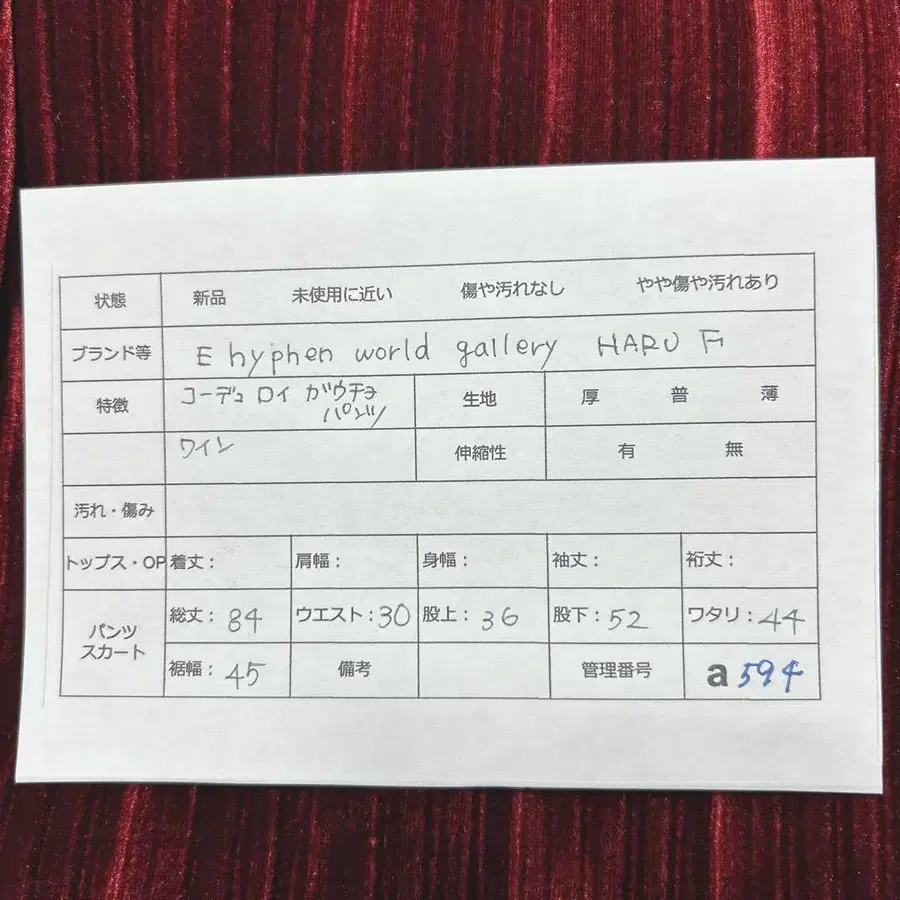 状態 新品 未使用に近い 傷や汚れなし やや傷や汚れあり
ブランド等 E hyphen world gallery HARU F
特徴 コーデュロイ ガウチョ 生地 厚 普 薄
パンツ
ワイン 伸縮性 有 無
汚れ・傷み
トップス・OP 着丈： 肩幅： 身幅： 袖丈： 裄丈：
パンツ スカート 総丈：84 ウエスト：30 股上：36 股下：52 ワタリ：44
裾幅：45 備考 管理番号 a594